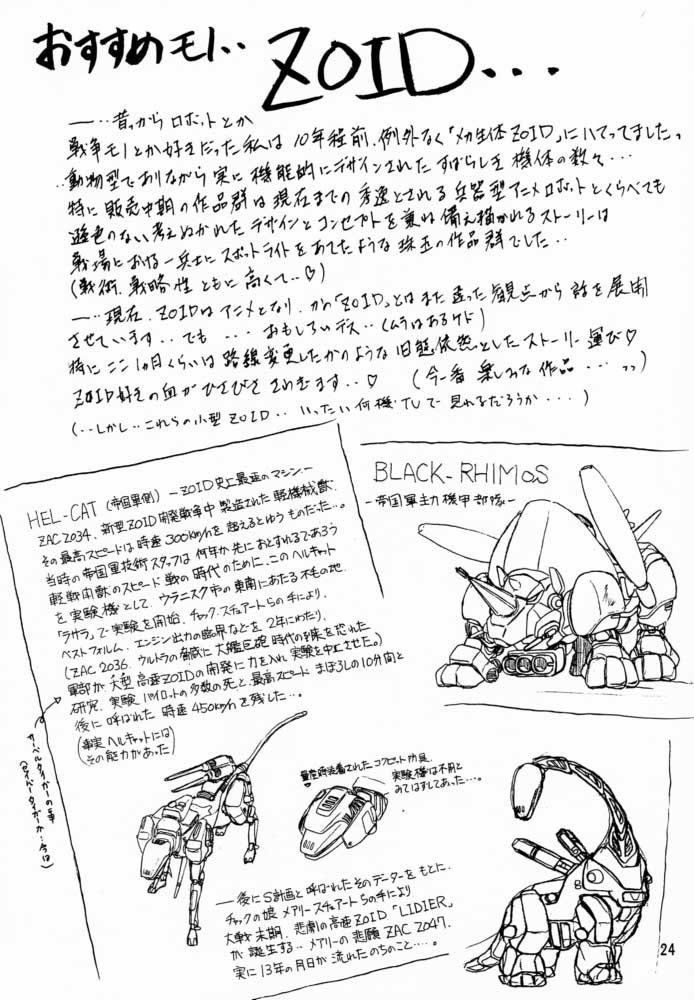 おすすめモノ‥ ZOID...
―‥昔っから ロボットとか
戦争モノとか好きだった私は 10年程前、例外なく「メカ生体ZOID」にハマってましたっ
‥動物型でありながら実に 機能的にデザインされた すばらしき 機体の数々‥‥
特に 販売中期の作品群は 現在までの 秀逸とされる 兵器型アニメロボットとくらべても
遜色のない 考えぬかれた デザインと コンセプトを 兼ね備え 描かれるストーリーは
戦場における一兵士に スポットライトを あてたような 珠玉の作品群でした‥
(戦術、戦略性 ともに 高くて‥♡)
―‥現在、ZOIDは アニメとなり、かの「ZOID」とは また 違った 観点から 話を 展開
させています‥でも ‥‥おもしろいデス‥(ムラはあるケド)
特に ここ1ヵ月くらいは 路線変更したかのような 旧態依然としたストーリー運び♡
ZOID好きの血が ひさびさ さわぎます‥♡ (今一番 楽しみな 作品‥‥っっ)
(‥しかし‥これらの小型 ZOID‥いったい何機 TVで 見れるだろうか‥‥)
HEL-CAT (帝国軍側) ―ZOID史上最速のマシン―
ZAC2034、新型ZOID開発戦争中 製造された 軽機械獣。
その最高スピードは 時速300km/hを 超えるとゆうものだった‥。
当時の帝国軍技術スタッフは 何年か先に おとずれるであろう
軽戦闘獣のスピード戦の時代のために、このヘルキャット
を 実験機として、ウラニスク市の東南にあたる 不毛の地、
「ラサラ」で 実験を開始、チャック・スチュアートらの手により、
ベストフォルム、エンジン出力の臨界などを 2年にわたり、
(ZAC 2036、ウルトラの脅威に 大艦巨砲 時代の到来を恐れた
軍部が、大型高速ZOIDの開発に 力を入れ 実験を中止させた。)
研究、実験パイロットの 多数の死と、最高スピード まぼろしの10分間と
後に 呼ばれた 時速450km/hを 残した‥。
(事実 ヘルキャットには
その能力があった)
サーベルタイガーの事
(セイバータイガーか‥今は)
量産時装着された コクピット防具
実験機は不用と
みてはずしてあった‥‥。
―後にS計画と呼ばれた そのデーターをもとに、
チャックの娘 メアリースチュアートらの手により
大戦末期、悲劇の高速ZOID 「LIDIER」
が 誕生する‥ メアリーの悲願 ZAC 2047、
実に13年の月日が 流れたのちのこと‥‥。
BLACK-RHIMOS
―帝国軍主力機甲部隊―
24